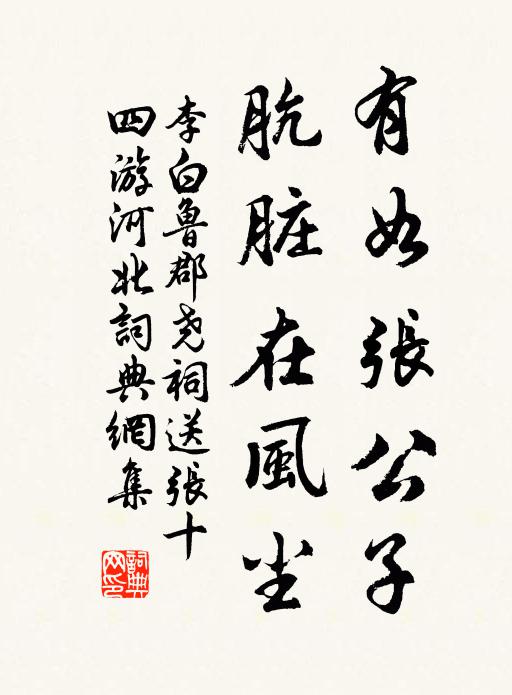 有如張公子
肮脏在風尘
李白魯郡尧祠送張十
四游河北詞典網集
詞典
网印